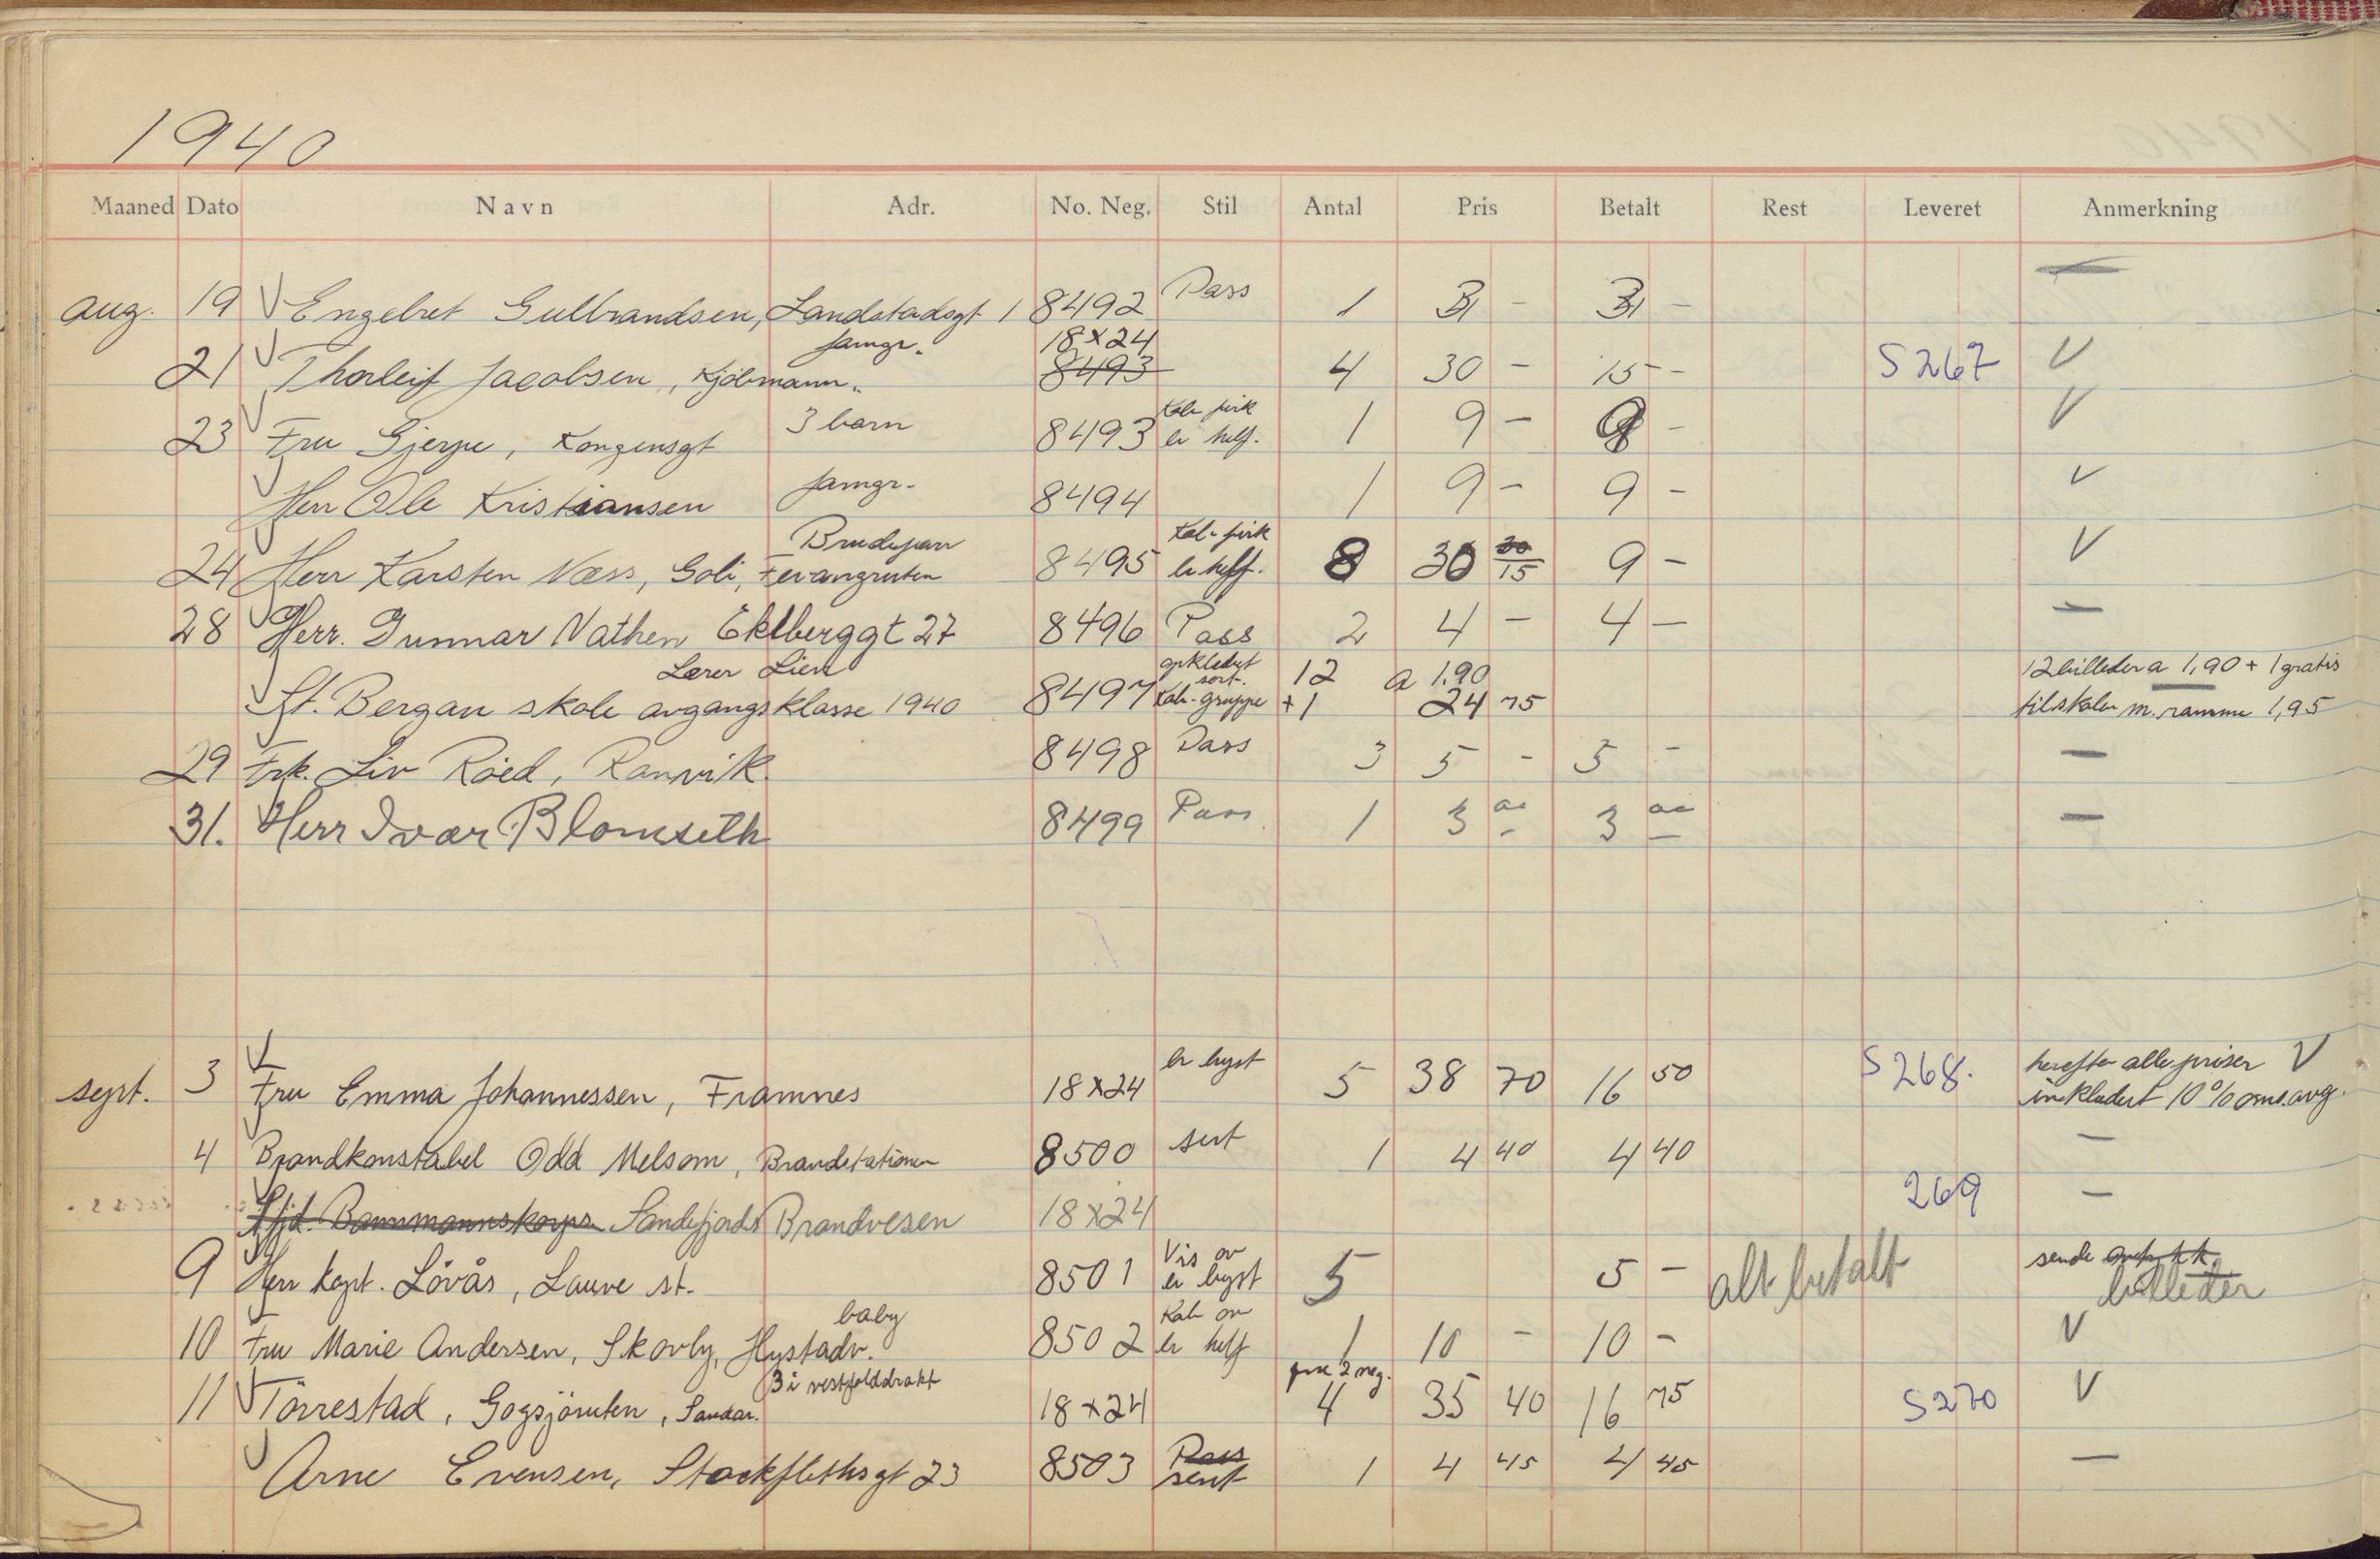 1940
Maaned Dato Navn Adr. No. Neg. Stil Antal Pris Betalt Rest Leveret Anmerkning
aug. 19 Engebret Gulbrandsen, Landstadsgt 1 8492 Pass 1 3 - 3 - —
famgr. 18x24
21 Thorleif Jacobsen, Kjöbmann. 8493 4 30 - 15 - S 267 V
3 barn Kab. virk
23 Fru Gjerpe, Kongensgt 8493 er helf. 1 9 - 9 - V
famgr.
Herr Ole Kristiansen 8494 1 9 - 9 - V
Brudepar Kab. virk 30
24 Herr Karsten Næss, Goli, Fevangruten 8495 er helf. 8 36 15 9 - V
28 Herr. Gunnar Nathen Ekeberggt 27 8496 Pass 2 4 - 4 — —
Lærer Lien opklebet sort. 12 a 1.90 12 billeder a 1,90 + 1 gratis
St. Bergan skole avgangsklasse 1940 8497 Kab-gruppe +1 24 75 til skolen m. ramme 1,95
29 Frk. Liv Röed, Ranvik 8498 Pass 3 5 - 5 - —
31. Herr Ivar Blomseth 8499 Pass 1 3 oo 3 oo —
er bryst herefter alle priser V
sept. 3 Fru Emma Johannessen, Framnes 18x24 5 38 70 16 50 S 268. inkludert 10% oms.avg.
4 Brandkonstabel Odd Melsom, Brandstationen 8500 sert 1 4 40 4 40 —
Sfjd. Brannmannskorps Sandefjords Brandvesen 18x24 269 —
Vis ov sende
9 Herr kapt. Lövås, Lauve st. 8501 er bryst 5 5 - alt betalt billeder
baby Kab ov
10 Fru Marie Andersen, Skovly, Hystadv. 8502 er helf 1 10 - 10 - V
3 i vestfolddrakt 2 neg.
11 Törrestad, Gogsjöruten, Sandar. 18x24 4 35 40 16 75 S270 V
Pass
Arne Evensen, Stockflethsgt 23 8503 sert 1 4 45 4 45 —